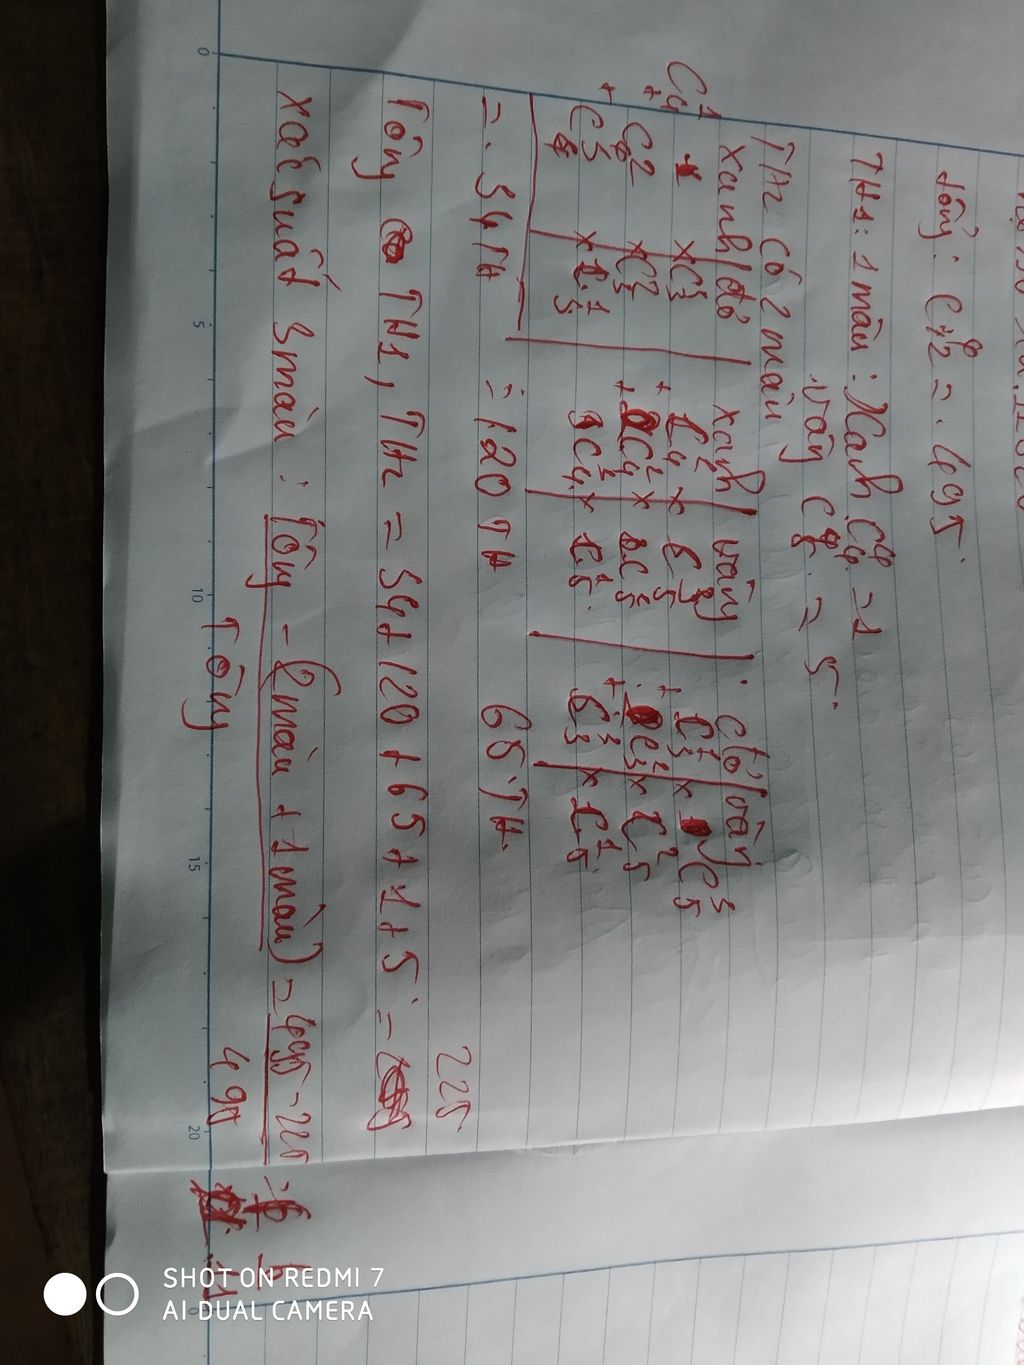 tổng: C⁴₁₂ = 495.
TH1: 1 màu: Xanh C⁴₄ = 1
vàng C⁴₅ = 5.
TH2 có 2 màu
xanh/đỏ | xanh/vàng | đỏ/vàng
C¹₄ × C³₃ | C¹₄ × C³₅ | C¹₃ × C³₅
+ C²₄ × C²₃ | + C²₄ × C²₅ | + C²₃ × C²₅
+ C³₄ × C¹₃ | + C³₄ × C¹₅ | + C³₃ × C¹₅
= 34TH = 120TH 65TH
Tổng TH1, TH2 = 34+120+65+1+5 = 225
xác suất 3 màu: Tổng - (2 màu + 1 màu) = 495-225 = 6
Tổng 495 11
0 5 10 15 20
SHOT ON REDMI 7
AI DUAL CAMERA